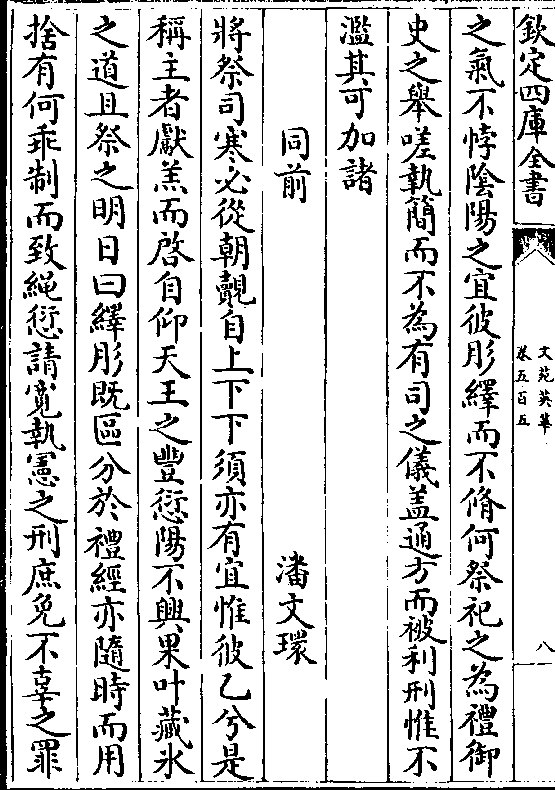 欽定四庫全書
文苑英華
卷五百五
八
之氣不悖陰陽之宜彼肜繹而不脩何祭祀之為禮御
史之舉嗟執簡而不為有司之儀盖通方而被利刑惟不
濫其可加諸
同前 潘文環
將祭司寒必從朝覿自上下下須亦有宜惟彼乙兮是
稱主者獻羔而啓自仰天王之豐愆陽不興果叶藏氷
之道且祭之明日曰繹肜既區分於禮經亦隨時而用
捨有何乖制而致繩愆請寛執憲之刑庶免不辜之罪